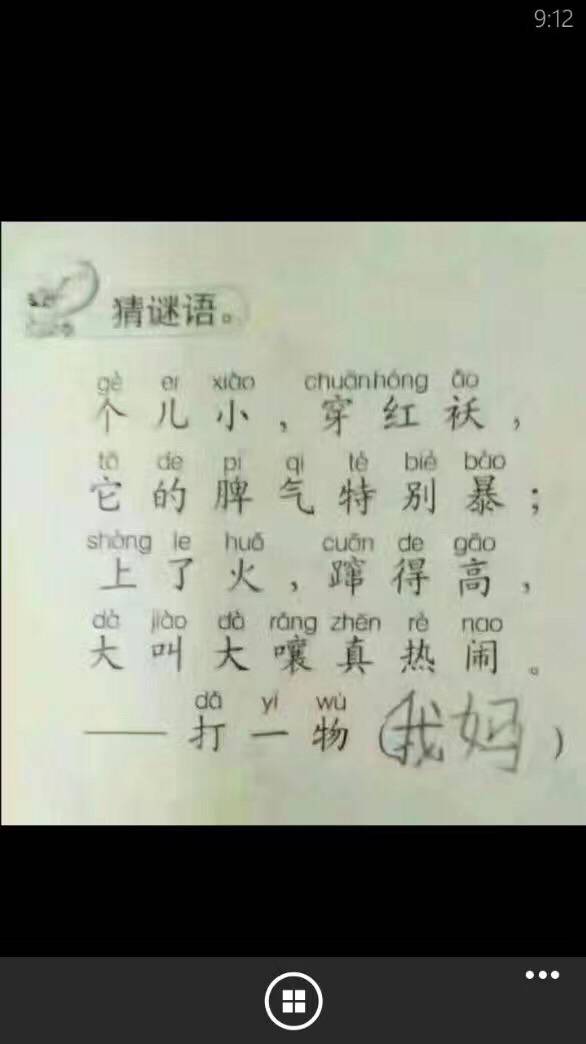 9:12
猜谜语。
gè er xiǎo chuānhóng ǎo
个儿小，穿红袄，
tā de pí qi tè bié bào
它的脾气特别暴；
shàng le huǒ cuān de gāo
上了火，蹿得高，
dà jiào dà rǎng zhēn rè nao
大叫大嚷真热闹。
dǎ yí wù
——打一物（我妈）